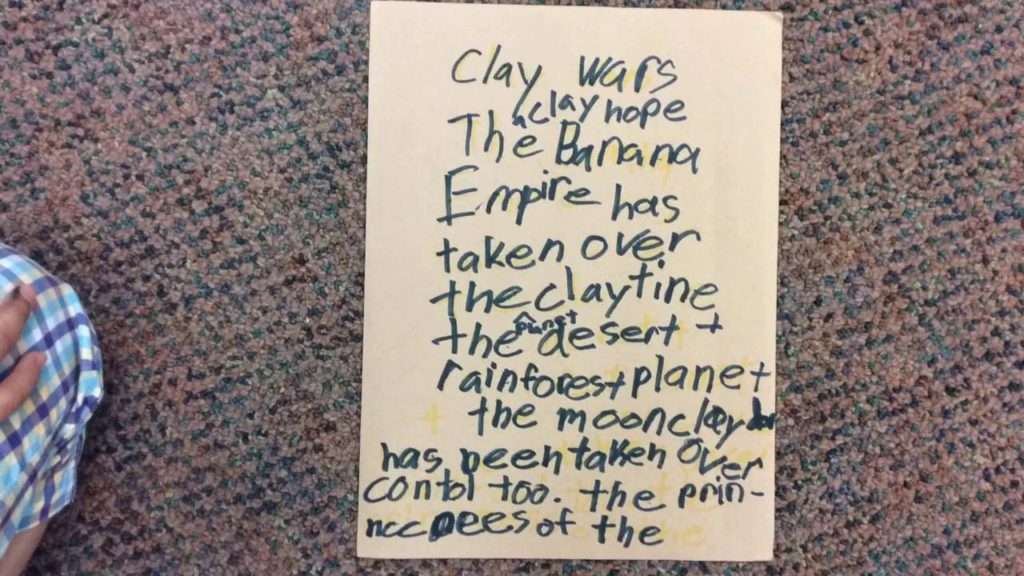 Clay wars
a clay hope
The Banana
Empire has
taken over
the claytine
planet
the desert +
rainforest planet
the moonclay
has been taken over
contol too. the prin-
nccees of the